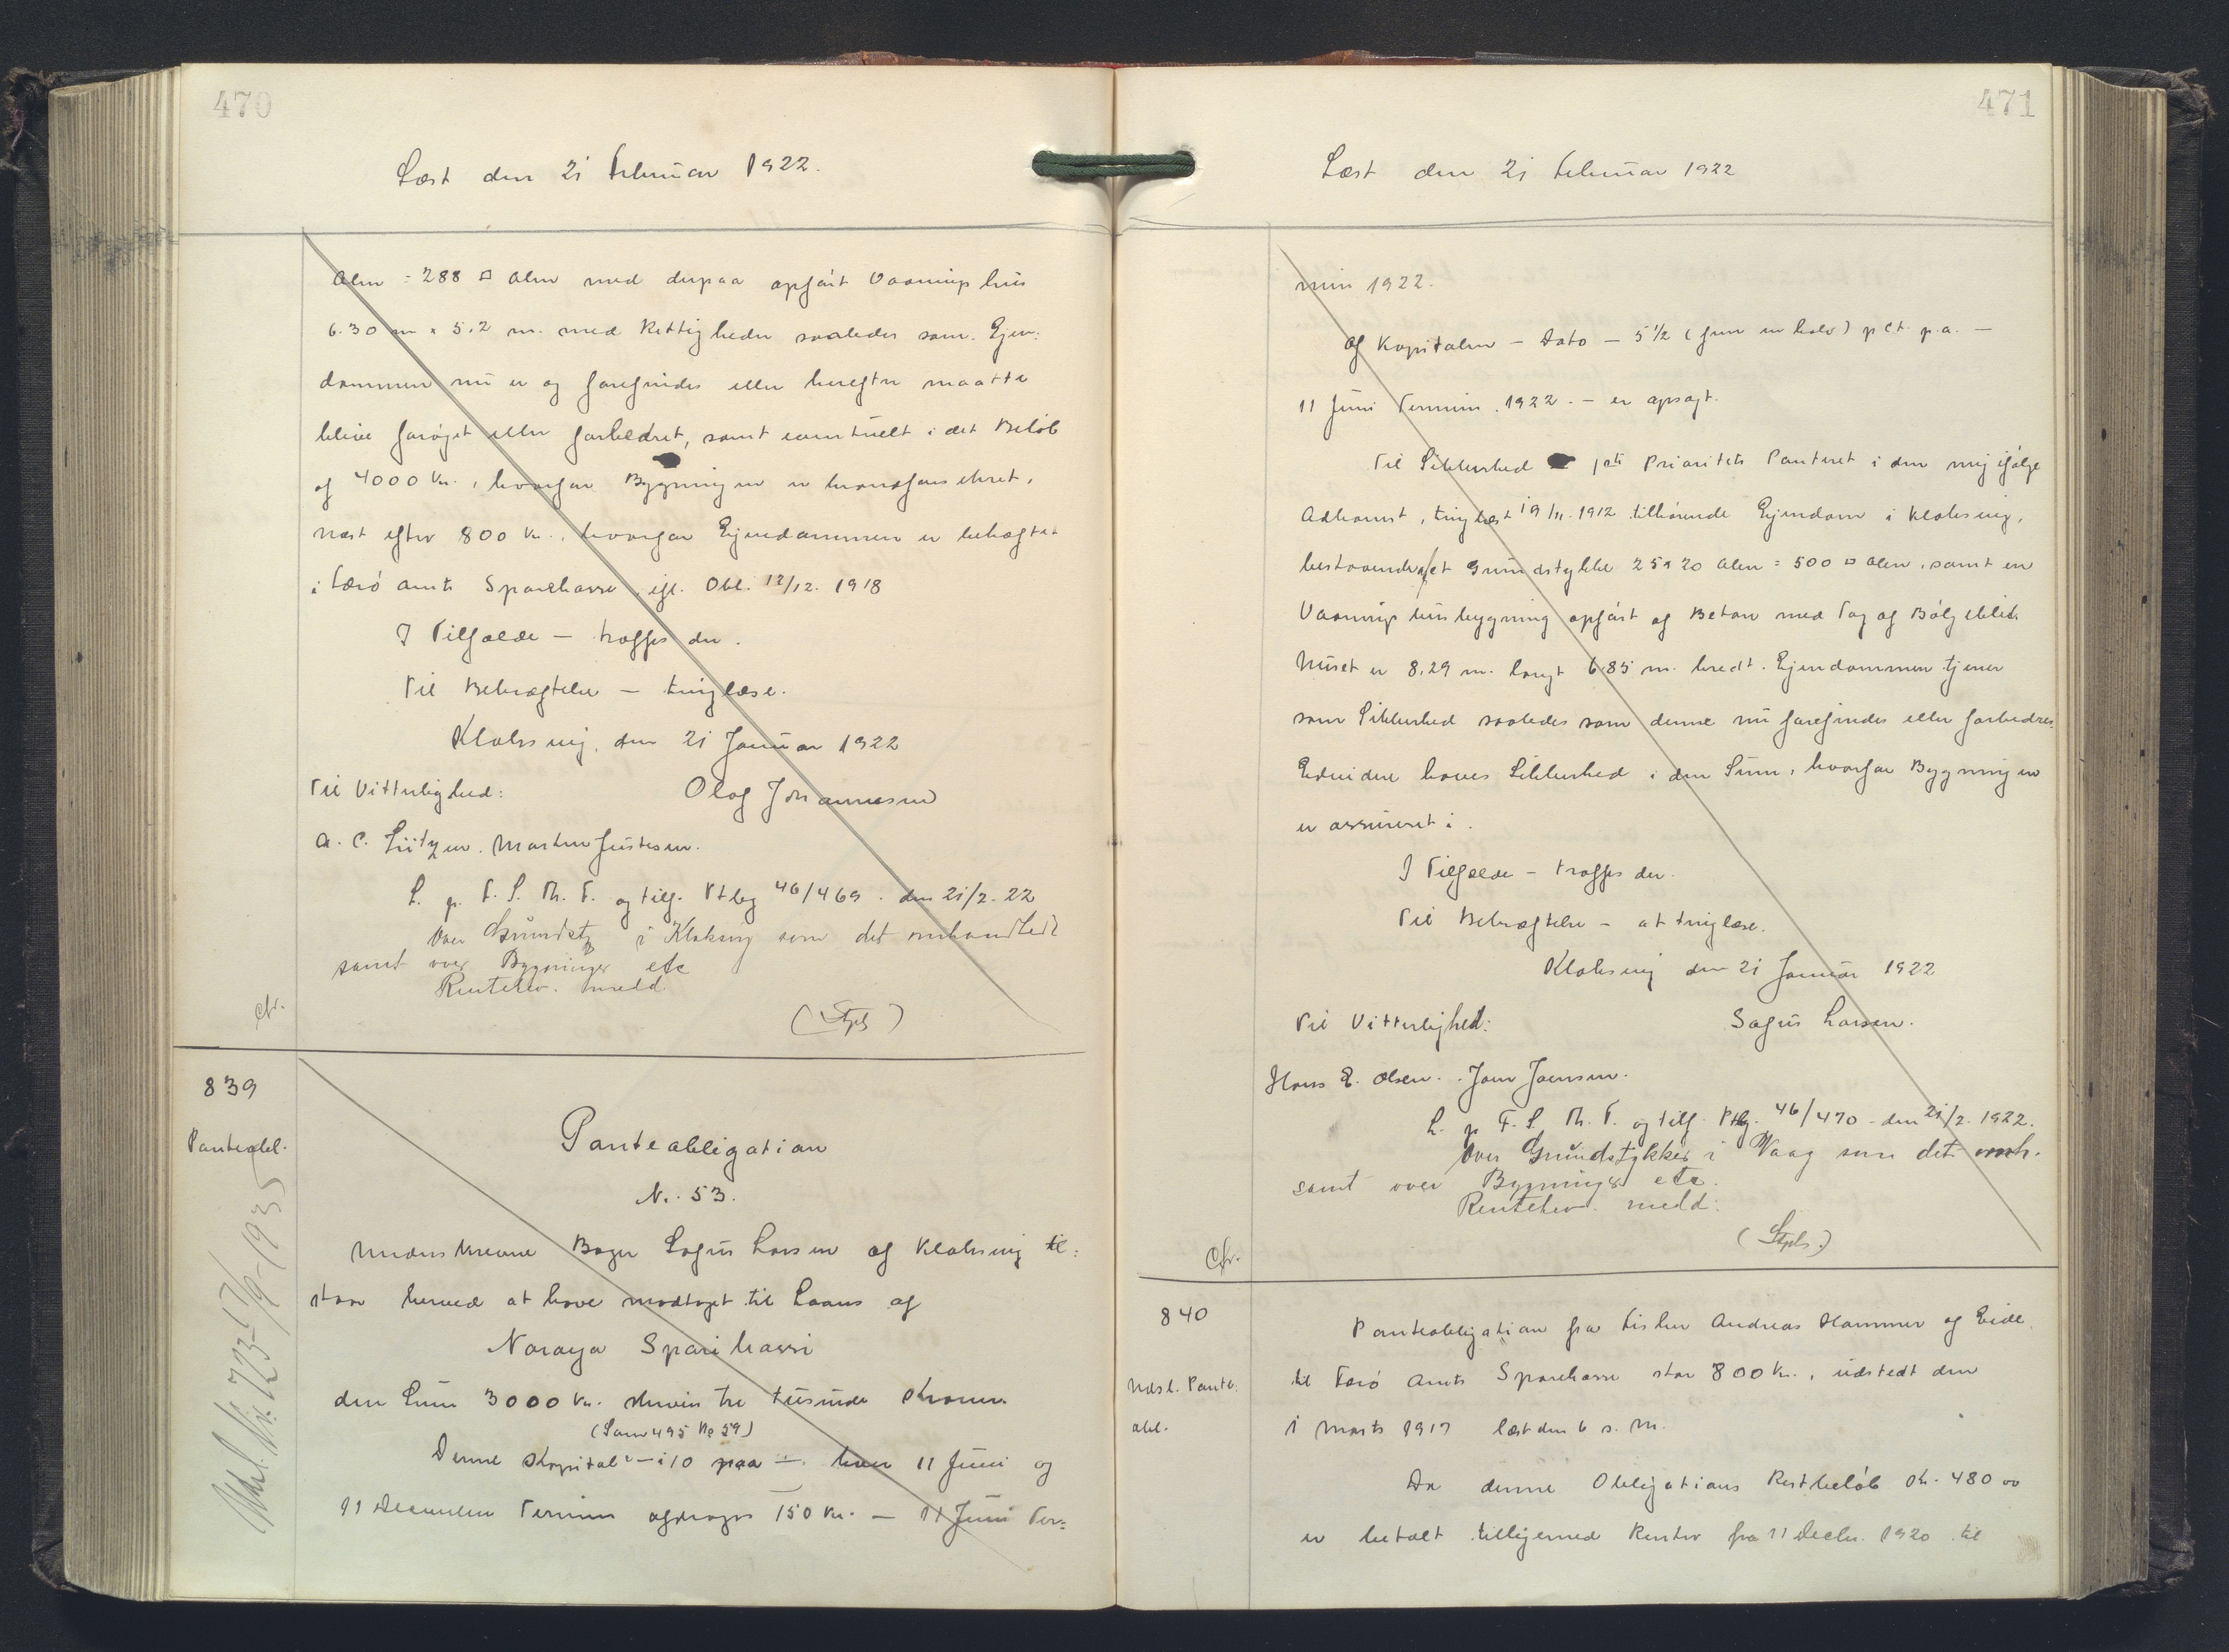 470
Læst den 21 Februar 1922.
Alen = 288 □ Alen med derpaa opført Vaaningshus
6.30 m x 5.2 m. med Rettigheder saaledes som Ejen=
dommen nu er og forefindes eller herefter maatte
blive forøget eller forbedret, samt eventuelt i det Beløb
af 4000 Kr., hvorfor Bygningen er brandforsikret,
næst efter 800 Kr., hvorfor Ejendommen er behæftet
i Færø Amts Sparekasse, igl. Obl. 12/12. 1918
I Tilfælde — træffes der.
Til Bekræftelse — tinglæse.
Klaksvig, den 21 Januar 1922
Til Vitterlighed: Olaf Johannesen
A. C. Lützen. Martin Justesen.
L. p. F. S. Th. F. og tilf. Ptbg 46/469. den 21/2. 22
over Grundst i Klaksvig som det omhandlede
samt over Bygninger etc
Rentehev. medd.
(Stpls)
cfr.
839
Panteobl.
Udsl. Nr. 723 17/9-1935
Panteobligation
No. 53.
Underskrevne Bager Sofus Larsen af Klaksvig til=
staar herved at have modtaget til Laans af
Norøya Sparikassi
den Sum 3000 Kr. skriver Tre Tusinde Kroner.
(Som 495 No 59)
Denne Kapital — i 10 paa — hver 11 Juni og
11 December Termin afdrages 150 Kr. — 11 Juni Ter=
471
Læst den 21 Februar 1922
min 1922.
Af Kapitalen — Dato — 5 1/2 (fem en halv) pCt. p.a. —
11 Juni Termin 1922. — er opsagt.
Til Sikkerhed 1ste Prioritets Panteret i den mig ifølge
Adkomst, tinglæst 19/11. 1912 tilhørende Ejendom i Klaksvig,
bestaaende af et Grundstykke 25 x 20 Alen = 500 □ Alen, samt en
Vaaningshusbygning opført af Beton med Tag af Bølgeblik.
Huset er 8,29 m. langt 6,85 m. bredt. Ejendommen tjener
som Sikkerhed saaledes som denne nu forefindes eller forbedres.
Endvidere haves Sikkerhed i den Sum, hvorfor Bygningen
er assureret i.
I Tilfælde — træffes der.
Til Bekræftelse — at tinglæse.
Klaksvig den 21 Januar 1922
Til Vitterlighed: Sofus Larsen.
Hans E. Olsen. Joen Joensen.
L. p. F. S. Th. F. og tilf. Ptbg. 46/470 - den 21/2. 1922.
over Grundstykker i Vaag som det omh.
samt over Bygninger etc.
Rentehev. medd.
(Stpls.)
Cfr.
840
Udsl. Pante.
obl.
Panteobligation fra Fisker Andreas Hammer af Eide
til Færø Amts Sparekasse stor 800 Kr., udstedt den
1 Marts 1917 læst den 6 s. M.
Da denne Obligations Restbeløb Kr. 480 00
er betalt tilligemed Renter fra 11 Decbr. 1920 til